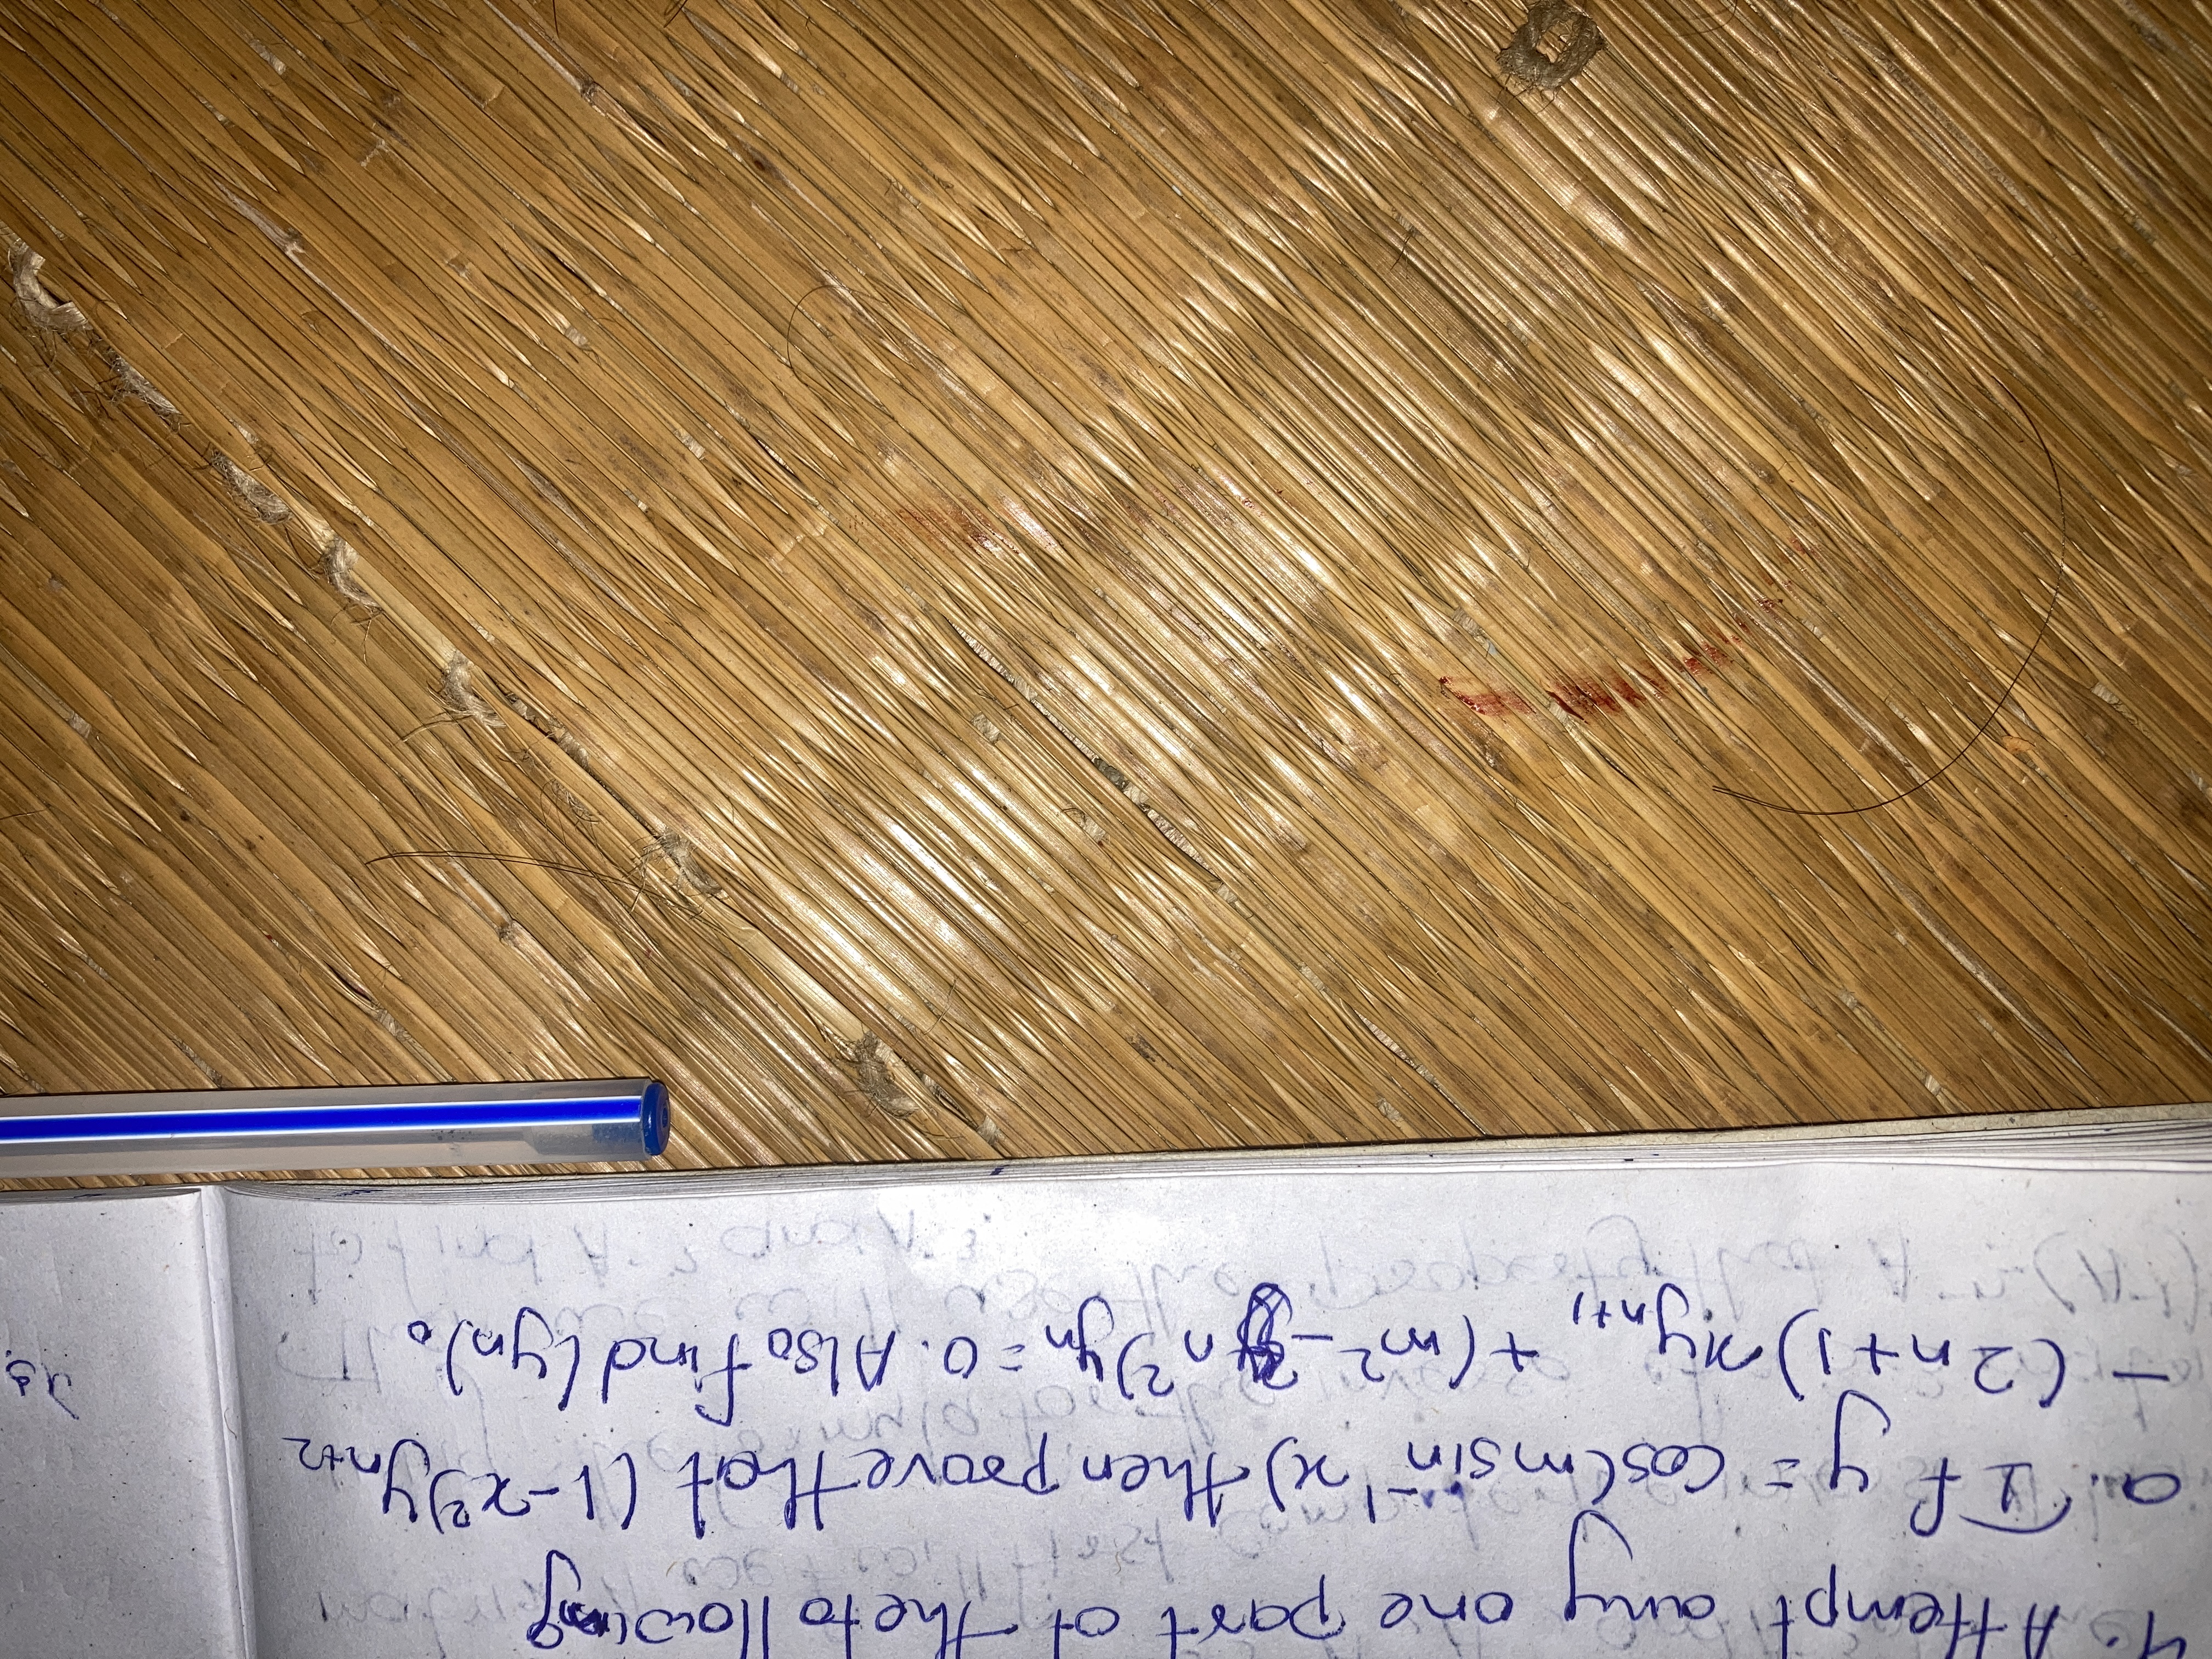 4. Attempt any one part of the following
a. If y = cos(msin⁻¹x) then proove that (1-x²)yₙ₊₂
- (2n+1)xyₙ₊₁ + (m²-n²)yₙ=0. Also find (yₙ)₀